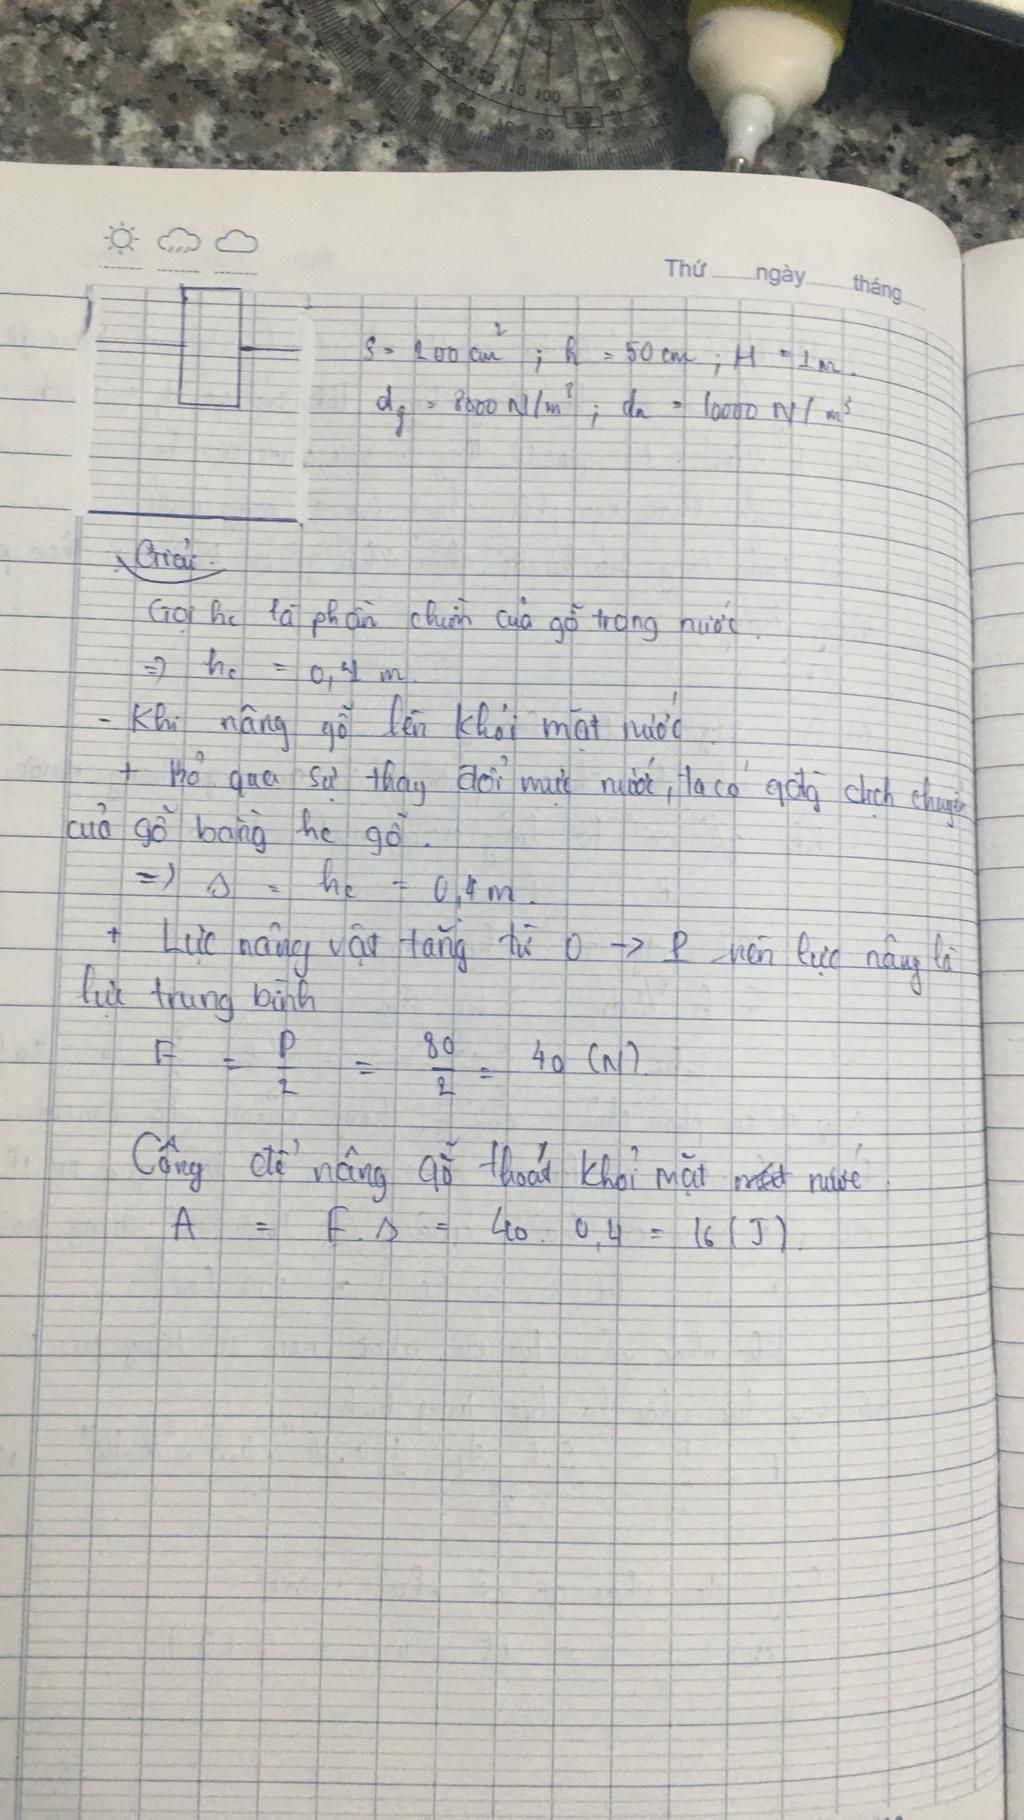 Thứ ngày tháng
S = 200 cm² ; h = 50 cm ; H = 1m.
dg = 8000 N/m³ ; dn = 10000 N/m³
Giải.
Gọi hc là phần chìm của gỗ trong nước.
=> hc = 0,4 m.
- Khi nâng gỗ lên khỏi mặt nước
+ Bỏ qua sự thay đổi mực nước, ta có qđg dịch chuyển
của gỗ bằng hc gỗ.
=> s = hc = 0,4 m.
+ Lực nâng vật tăng từ 0 -> P nên lực nâng là
lực trung bình
F = P/2 = 80/2 = 40 (N).
Công để nâng gỗ thoát khỏi mặt nước
A = F.s = 40. 0,4 = 16 (J).